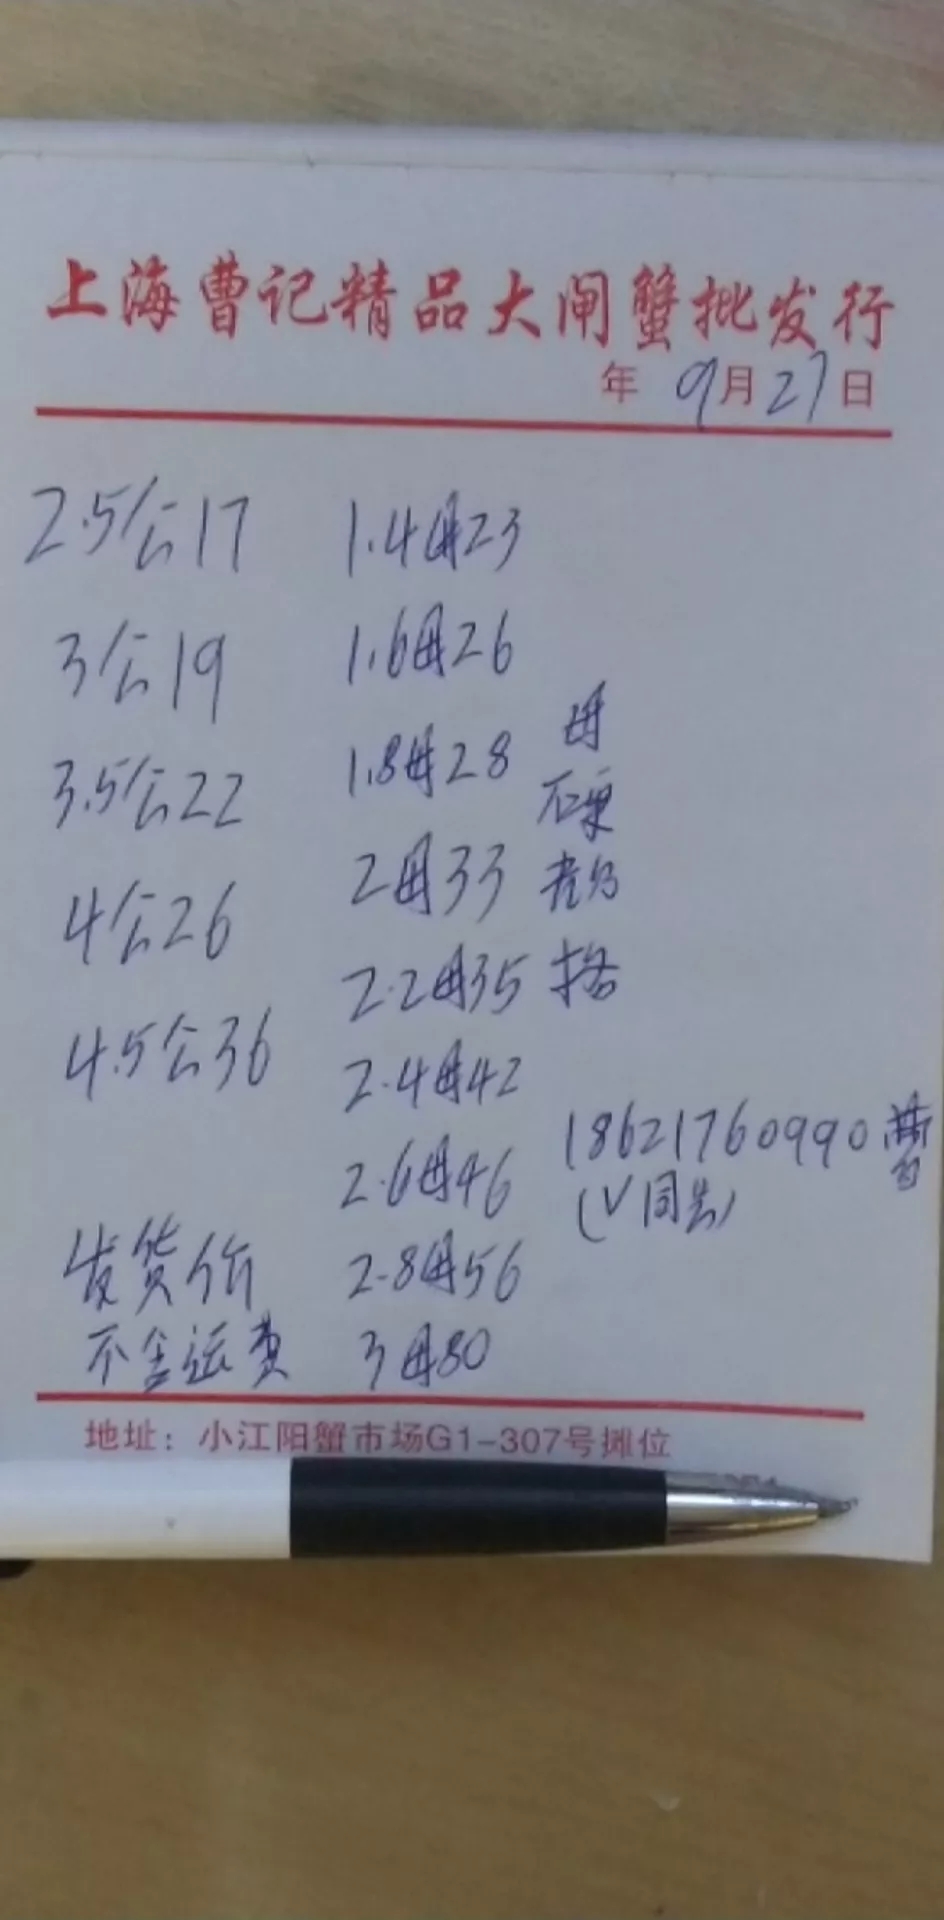 上海曹记精品大闸蟹批发行
年 9月27日
2.5公17
3公19
3.5公22
4公26
4.5公36
发货价
不含运费
1.4母23
1.6母26
1.8母28
2母33
2.2母35
2.4母42
2.6母46
2.8母56
3母80
母
硬
格
18621760990曹
(V同号)
地址：小江阳蟹市场G1-307号摊位